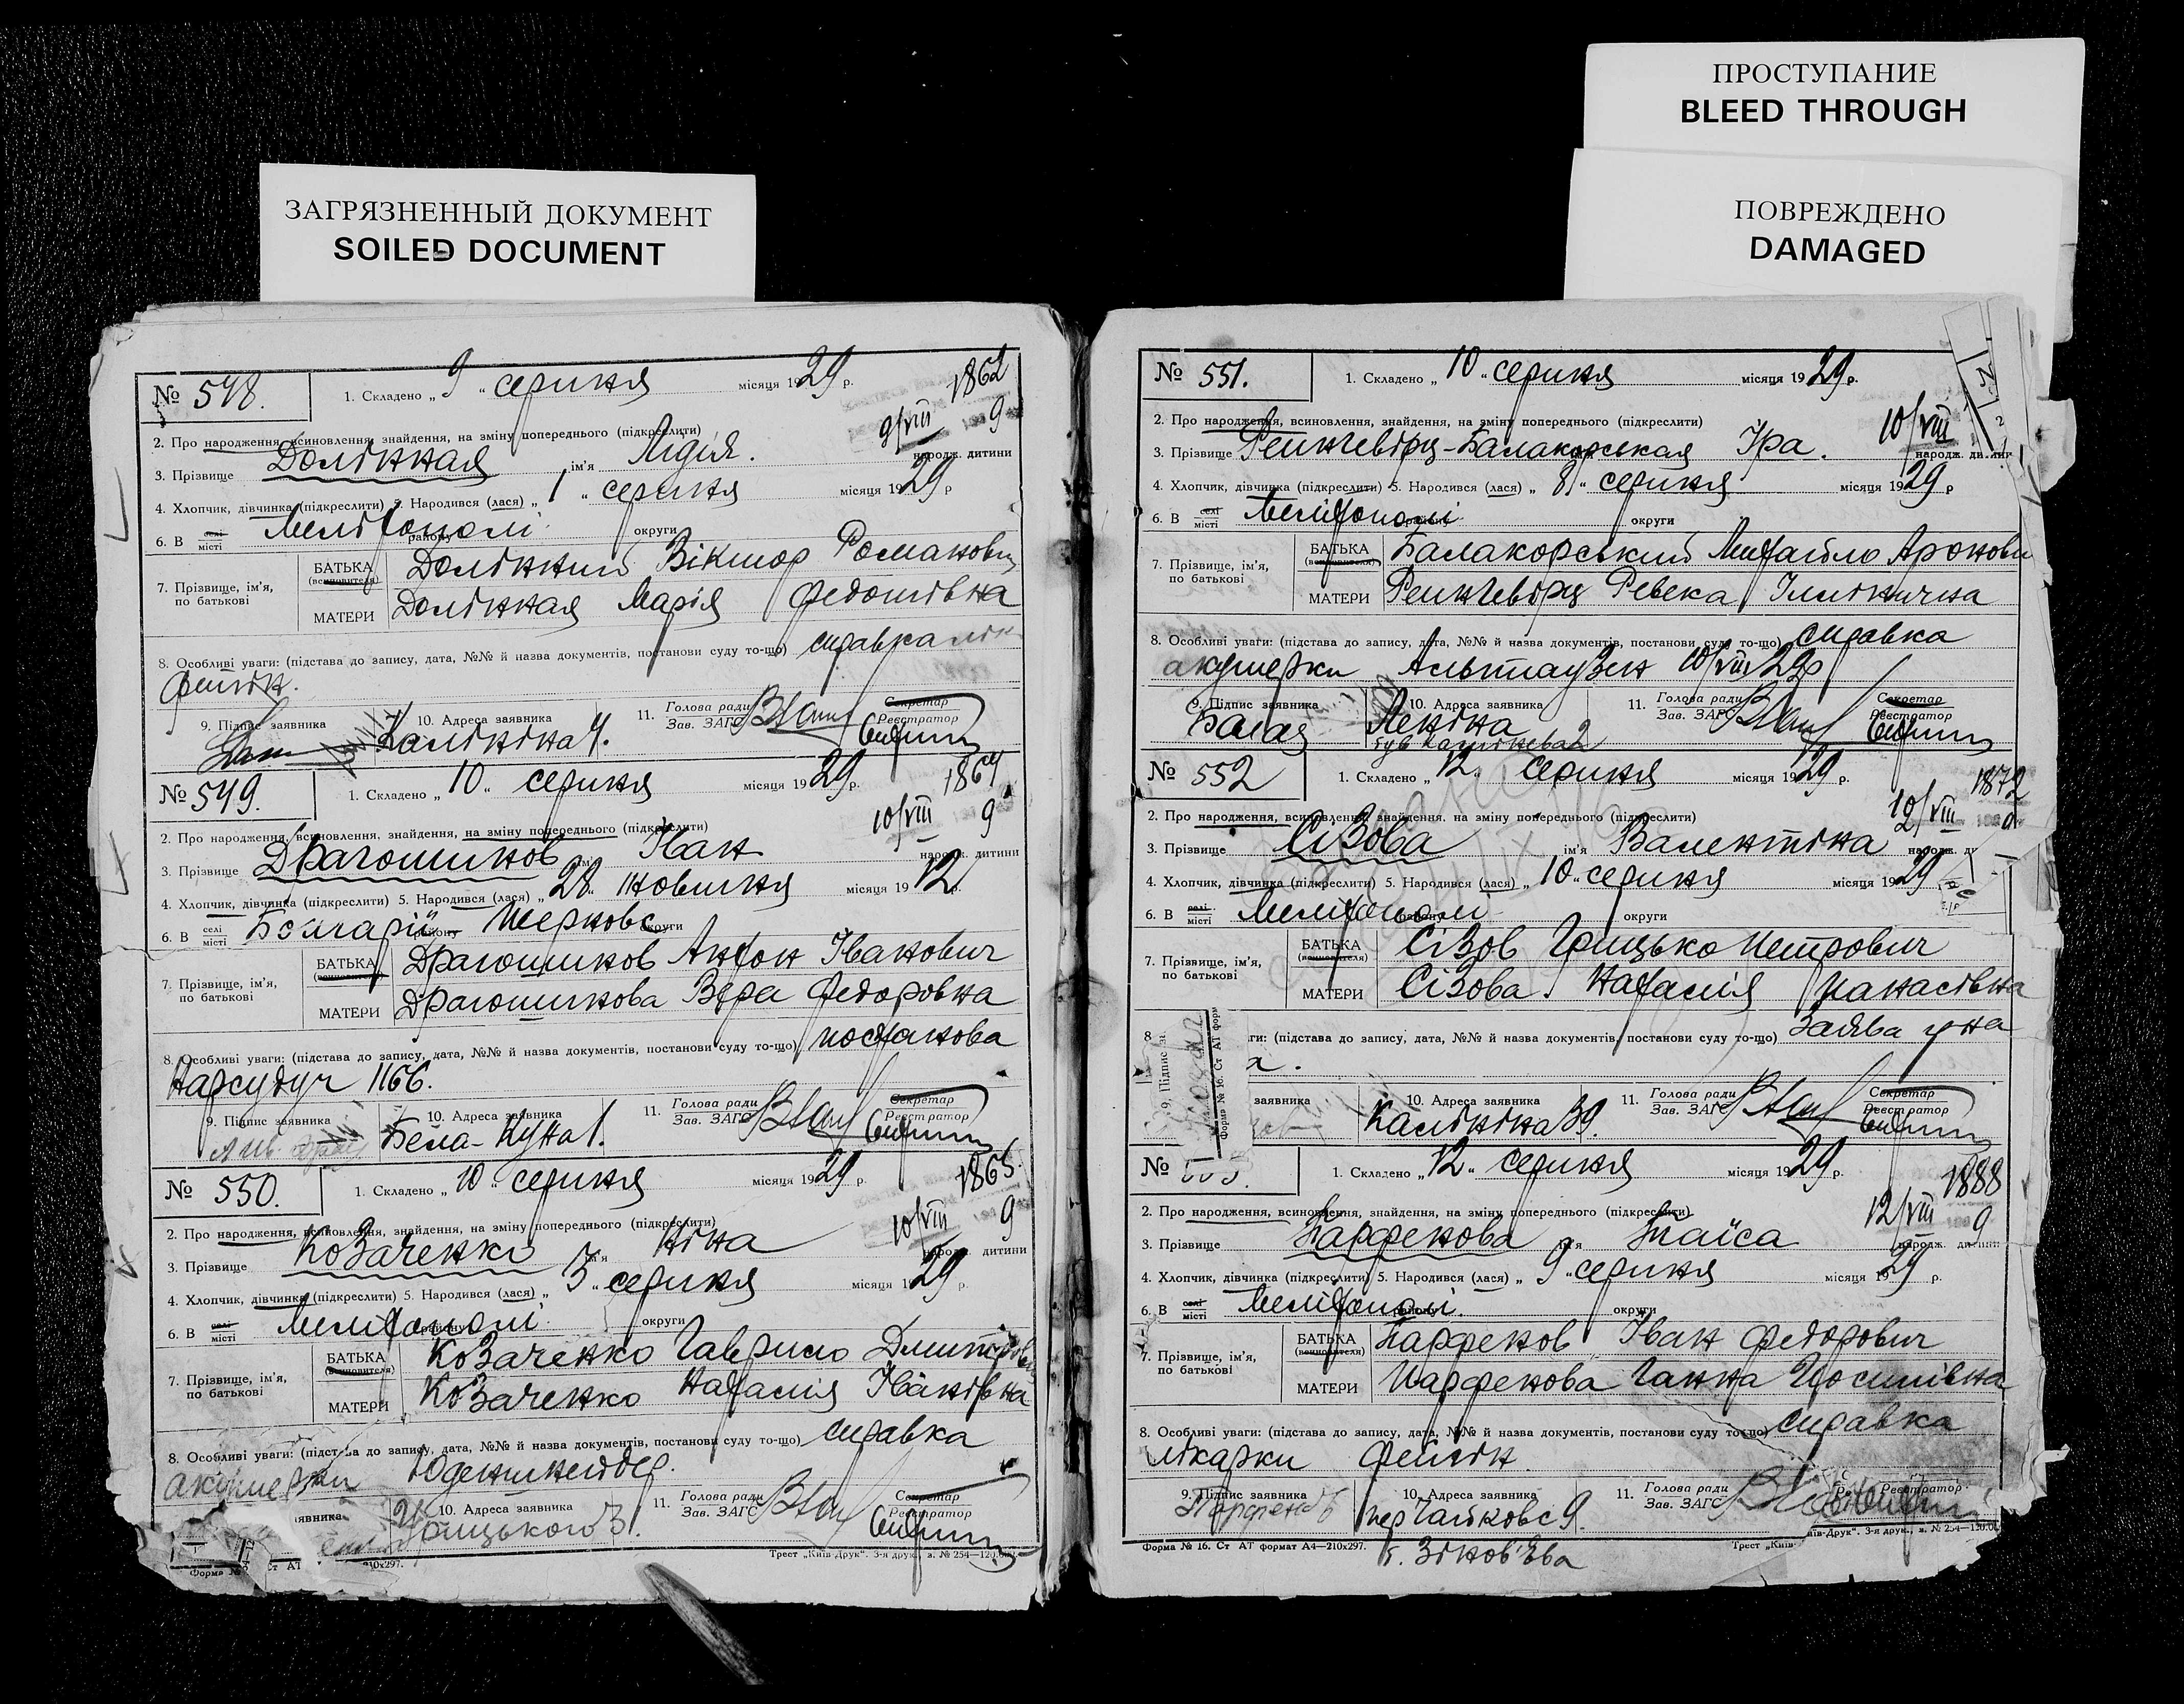 ЗАГРЯЗНЕННЫЙ ДОКУМЕНТ
SOILED DOCUMENT
ПРОСТУПАНИЕ
BLEED THROUGH
ПОВРЕЖДЕНО
DAMAGED
№ 548. 1. Складено „ 9 “ серпня місяця 1929 р. 1862
2. Про народження, всиновлення, знайдення, на зміну попереднього (підкреслити) 9/VIII 9
3. Прізвище Долінная ім'я Лідія. народж. дитини
4. Хлопчик, дівчинка (підкреслити) 5. Народився (лася) „ 1 “ серпня місяця 1929 р
6. В селі місті Мелітополі району округи
7. Прізвище, ім'я, по батькові БАТЬКА (всиновителя) Долінний Віктор Романович
МАТЕРИ Долінная Марія Федотівна
8. Особливі уваги: (підстава до запису, дата, №№ й назва документів, постанови суду то-що) справка лік
Фейгін.
9. Підпис заявника 10. Адреса заявника Калініна 4. 11. Голова ради Зав. ЗАГС Секретар Реєстратор
№ 549. 1. Складено „ 10 “ серпня місяця 1929 р. 1864
2. Про народження, всиновлення, знайдення, на зміну попереднього (підкреслити) 10/VIII 9
3. Прізвище Драгошинов ім'я Іван народж. дитини
4. Хлопчик, дівчинка (підкреслити) 5. Народився (лася) „ 28 “ місяця 1912 р.
6. В селі місті Болгарії району округи
7. Прізвище, ім'я, по батькові БАТЬКА (всиновителя) Драгошинов Антон Іванович
МАТЕРИ Драгошинова Вера Федоровна
8. Особливі уваги: (підстава до запису, дата, №№ й назва документів, постанови суду то-що) постанова
Нарсудуч 1166.
9. Підпис заявника 10. Адреса заявника Бела-Куна 1. 11. Голова ради Зав. ЗАГС Секретар Реєстратор
№ 550. 1. Складено „ 10 “ серпня місяця 1929 р. 1865.
2. Про народження, всиновлення, знайдення, на зміну попереднього (підкреслити) 10/VIII 9
3. Прізвище Козаченко ім'я Ніна народж. дитини
4. Хлопчик, дівчинка (підкреслити) 5. Народився (лася) „ 3 “ серпня місяця 1929 р.
6. В селі місті Мелітополі району округи
7. Прізвище, ім'я, по батькові БАТЬКА (всиновителя) Козаченко Гаврило Дмитрович
МАТЕРИ Козаченко Наталія Іванівна
8. Особливі уваги: (підстава до запису, дата, №№ й назва документів, постанови суду то-що) справка
акушерки
заявника 10. Адреса заявника 31. 11. Голова ради Зав. ЗАГС Секретар Реєстратор
Форма № Ст АТ 210х297. Трест „Київ-Друк“. 3-я друк., з. № 254—120.000
№ 551. 1. Складено „ 10 “ серпня місяця 1929 р.
2. Про народження, всиновлення, знайдення, на зміну попереднього (підкреслити) 10/VIII
3. Прізвище Балакорская Іра. народж. дитини
4. Хлопчик, дівчинка (підкреслити) 5. Народився (лася) „ 8 “ серпня місяця 1929 р
6. В селі місті Мелітополі району округи
7. Прізвище, ім'я, по батькові БАТЬКА (всиновителя) Балакорський Михайло Аронович
МАТЕРИ Ревека Іллінична
8. Особливі уваги: (підстава до запису, дата, №№ й назва документів, постанови суду то-що) справка
акушерки Альтаузен 10/VIII 29р
9. Підпис заявника Балак 10. Адреса заявника Леніна 11. Голова ради Зав. ЗАГС Секретар Реєстратор
№ 552 1. Складено „ 12 “ серпня місяця 1929 р. 1872
2. Про народження, всиновлення, знайдення, на зміну попереднього (підкреслити) 12/VIII 9
3. Прізвище Сізова ім'я Валентіна народж. ди
4. Хлопчик, дівчинка (підкреслити) 5. Народився (лася) „ 10 “ серпня місяця 1929
6. В селі місті Мелітополі району округи
7. Прізвище, ім'я, по батькові БАТЬКА (всиновителя) Сізов Грицько Петрович
МАТЕРИ Сізова Наталія Панасівна
8 ги: (підстава до запису, дата, №№ й назва документів, постанови суду то-що) Заява
заявника 10. Адреса заявника Калініна 39. 11. Голова ради Зав. ЗАГС Секретар Реєстратор
№ 1. Складено „ 12 “ серпня місяця 1929 р. 1888
2. Про народження, всиновлення, знайдення, на зміну попереднього (підкреслити) 12/VIII 9
3. Прізвище Парфенова ім'я Таїса народж. дитини
4. Хлопчик, дівчинка (підкреслити) 5. Народився (лася) „ 9 “ серпня місяця 1929 р.
6. В селі місті Мелітополі району округи
7. Прізвище, ім'я, по батькові БАТЬКА (всиновителя) Парфенов Іван Федорович
МАТЕРИ Парфенова Ганна Йосипівна
8. Особливі уваги: (підстава до запису, дата, №№ й назва документів, постанови суду то-що) справка
лікарки Фейгін
9. Підпис заявника Парфенов 10. Адреса заявника пер Чайковс 9. 11. Голова ради Зав. ЗАГС Реєстратор
Форма № 16. Ст АТ формат А4—210х297. Трест „Київ-Друк“. 3-я друк., з. № 254—120.00
б. Зінов'єва